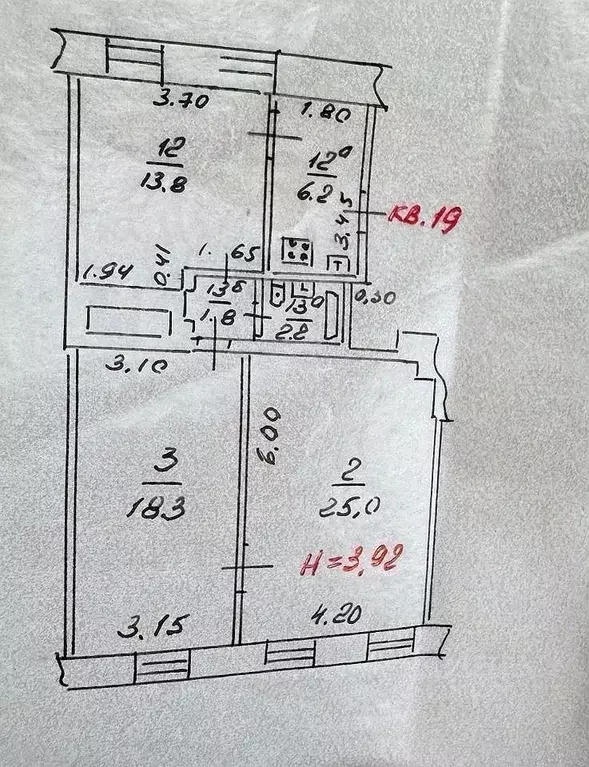 3.70
1.80
12
13.8
12а
6.2
3.45
КВ.19
1.94
0.41
1.65
13б
1.8
13а
2.8
т
0,30
3.10
6.00
3
18.3
2
25,0
H=3,92
3.15
4.20